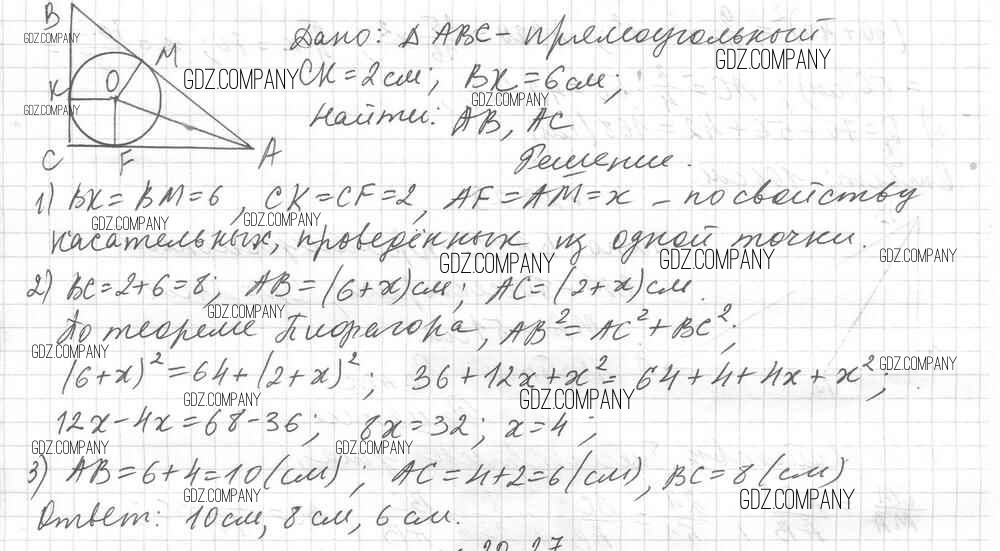 B
Дано: Δ ABC - прямоугольный
GDZ.COMPANY
GDZ.COMPANY
M
O
GDZ.COMPANY CK = 2 см; BK = 6 см;
K
GDZ.COMPANY
GDZ.COMPANY
Найти: AB, AC
C F A
Решение.
1) BK = BM = 6, CK = CF = 2, AF = AM = x - по свойству
GDZ.COMPANY GDZ.COMPANY
касательных, проведённых из одной точки.
GDZ.COMPANY GDZ.COMPANY GDZ.COMPANY
2) BC = 2+6 = 8; AB = (6+x) см; AC = (2+x) см.
GDZ.COMPANY
По теореме Пифагора, AB² = AC² + BC²;
GDZ.COMPANY
(6+x)² = 64 + (2+x)²; 36 + 12x + x² = 64 + 4 + 4x + x²;
GDZ.COMPANY
GDZ.COMPANY GDZ.COMPANY
12x - 4x = 68 - 36; 8x = 32; x = 4;
GDZ.COMPANY GDZ.COMPANY
3) AB = 6+4 = 10 (см); AC = 4+2 = 6 (см), BC = 8 (см)
GDZ.COMPANY GDZ.COMPANY
Ответ: 10 см, 8 см, 6 см.